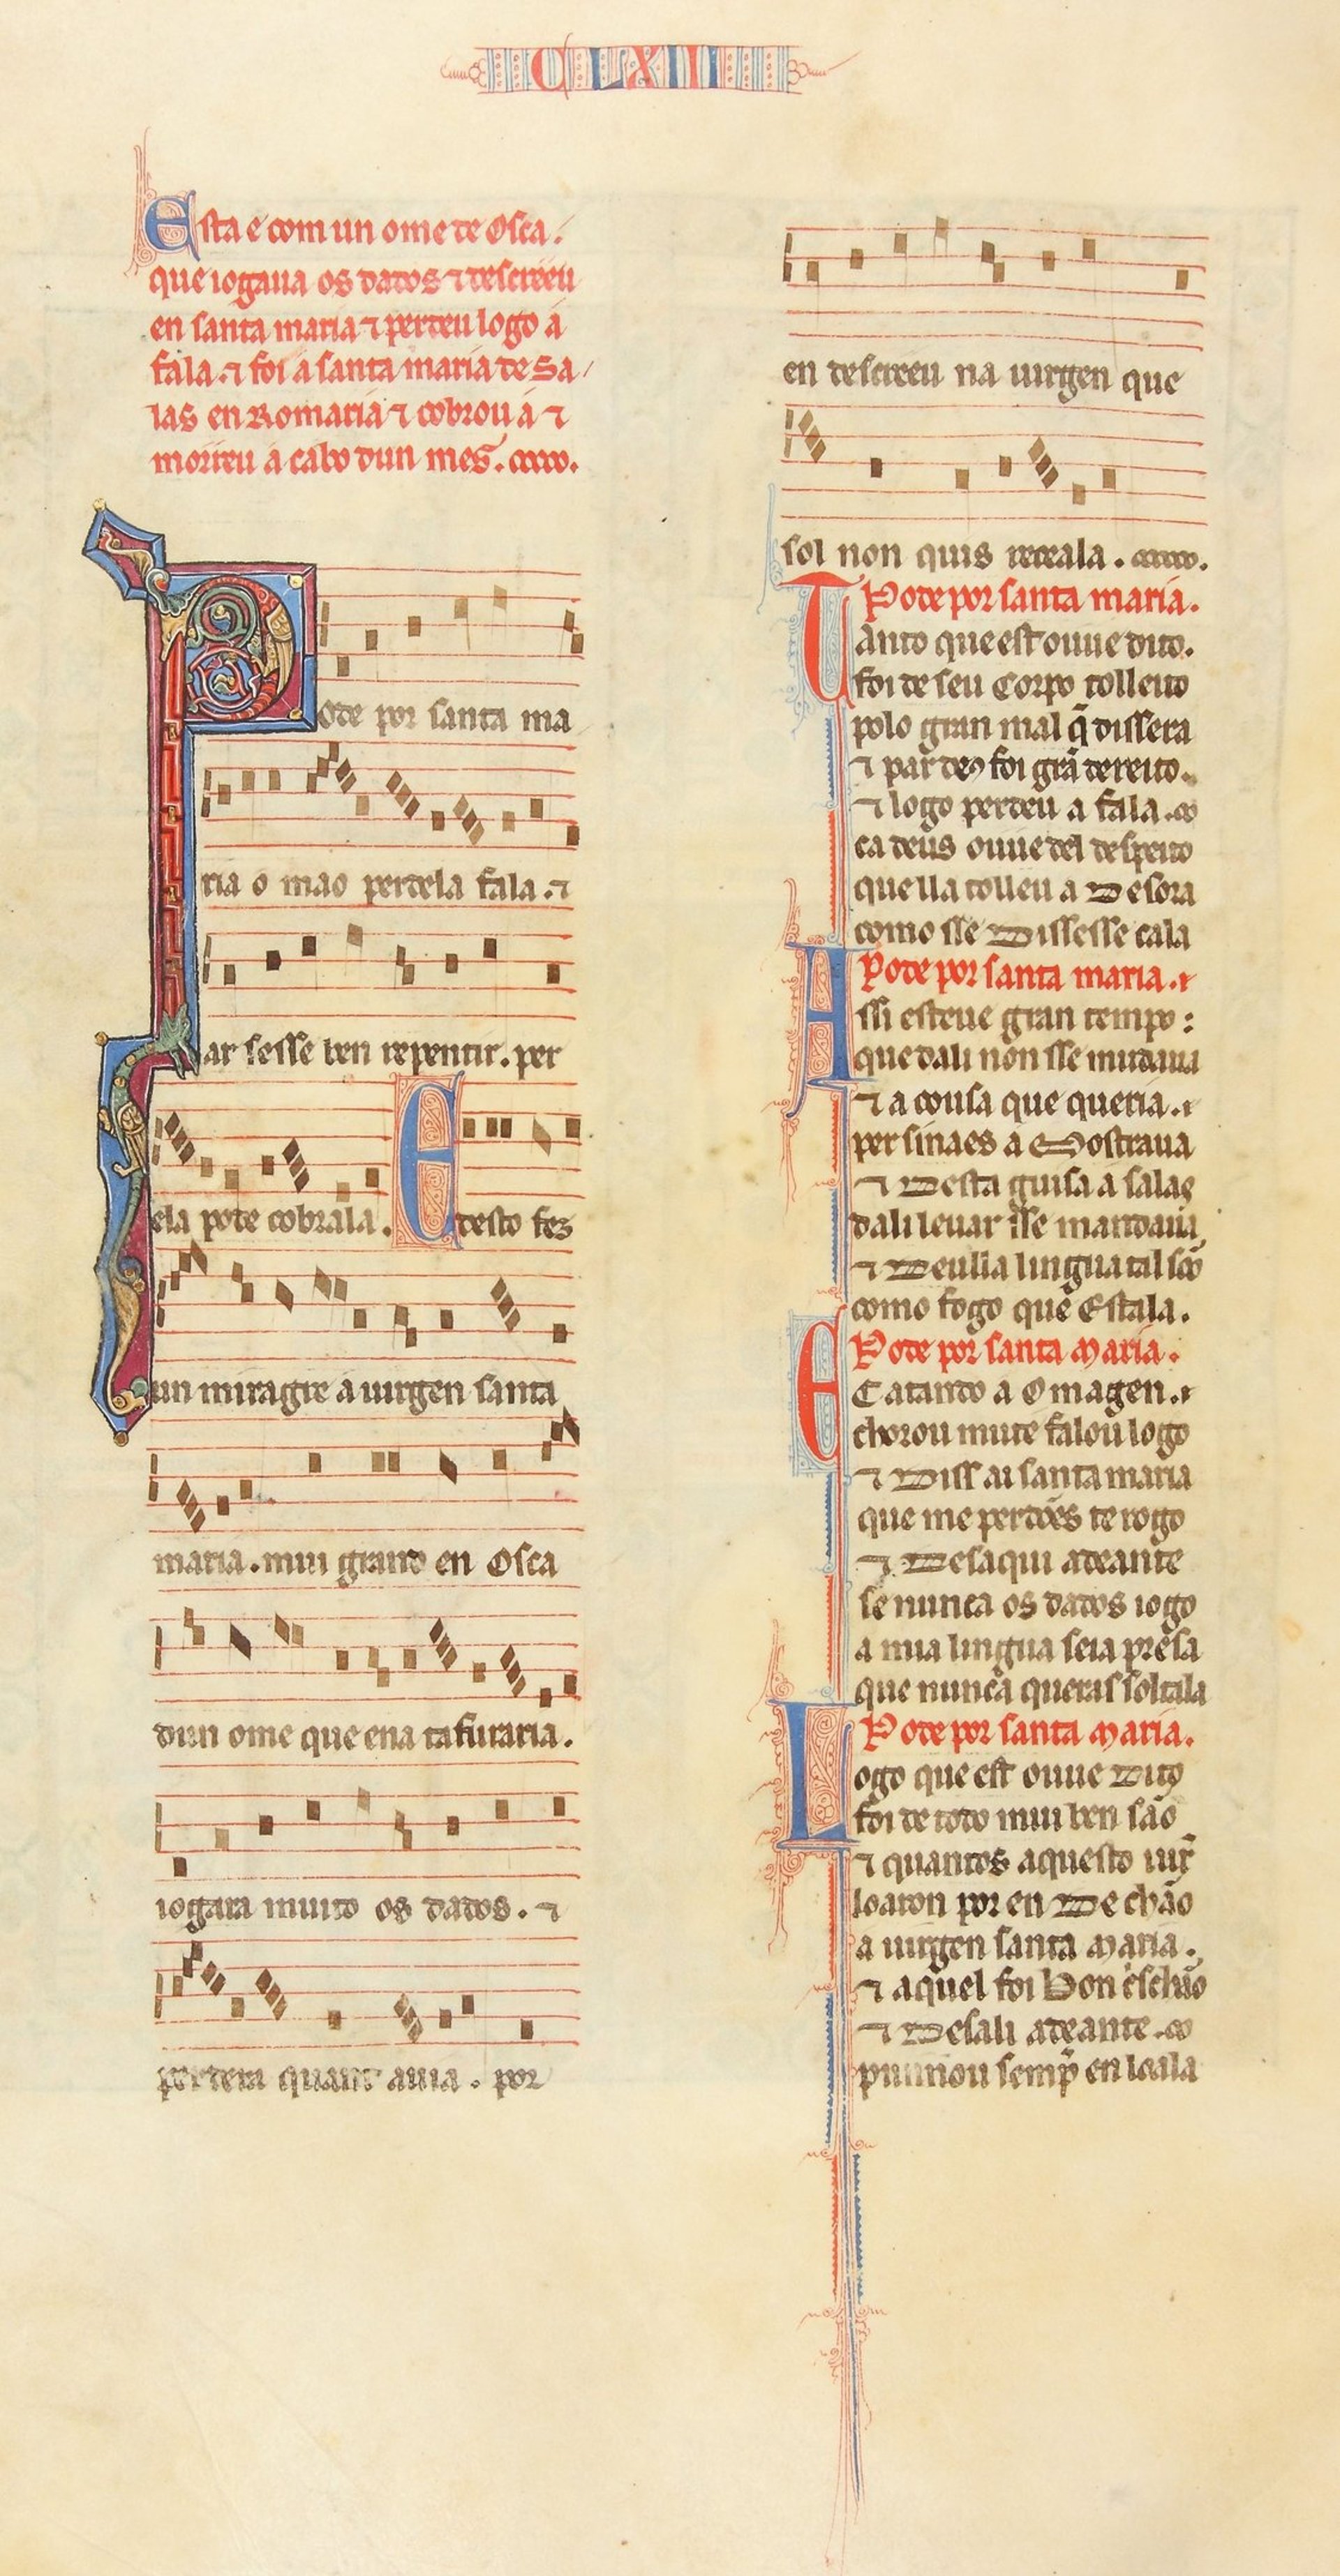 CLXIII
Esta e com un ome de Osca.
que iogaua os dados ⁊ descreeu
en santa maria ⁊ perdeu logo a
fala. ⁊ foi a santa maria de Sa/
las en Romaria ⁊ cobrou a ⁊
morreu a cabo dun mes.
Pode por santa ma
ria o mao perdela fala. ⁊
ar sesse ben repentir. per
ela pode cobrala. E desto fez
un miragre a uirgen santa
maria. mui grand en Osca
dun ome que ena tafuraria.
iogara muito os dados. ⁊
perdera quant auia. por
en descreeu na uirgen que
sol non quis redeala.
Pode por santa maria.
Tanto que est ouue dito.
foi de seu Corpo tolleito
polo gran mal q̃ dissera
⁊ par deus foi grã dereito.
⁊ logo perdeu a fala.
ca deus ouue del despeito
que lla tolleu a Desora
como sse Dissesse cala
Pode por santa maria.
Assi esteue gran tempo:
que dali non sse mudaua
⁊ a cousa que queria.
per sinaes a Mostraua
⁊ Desta guisa a salas
dali leuar sse mandaua
⁊ Deulla lingua tal sõ
como fogo que Estala.
Pode por santa Maria.
E Catando a Omagen.
chorou muit e falou logo
⁊ Diss ai santa maria
que me perdões te rogo
⁊ Desaqui adeante
se nunca os dados iogo
a mia lingua seia presa
que nunca queras soltala
Pode por santa Maria.
Logo que est ouue Dito
foi de todo mui ben são
⁊ quantos aquesto uirõ
loaron por en De chão
a uirgen santa Maria.
⁊ aquel foi bon crischão
⁊ Desali adeante
punnou semp̃ en loala